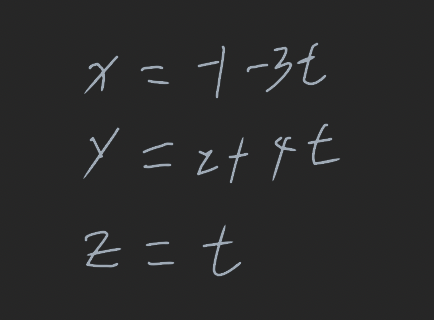 x = -1 -3t
y = 2 + 4t
z = t